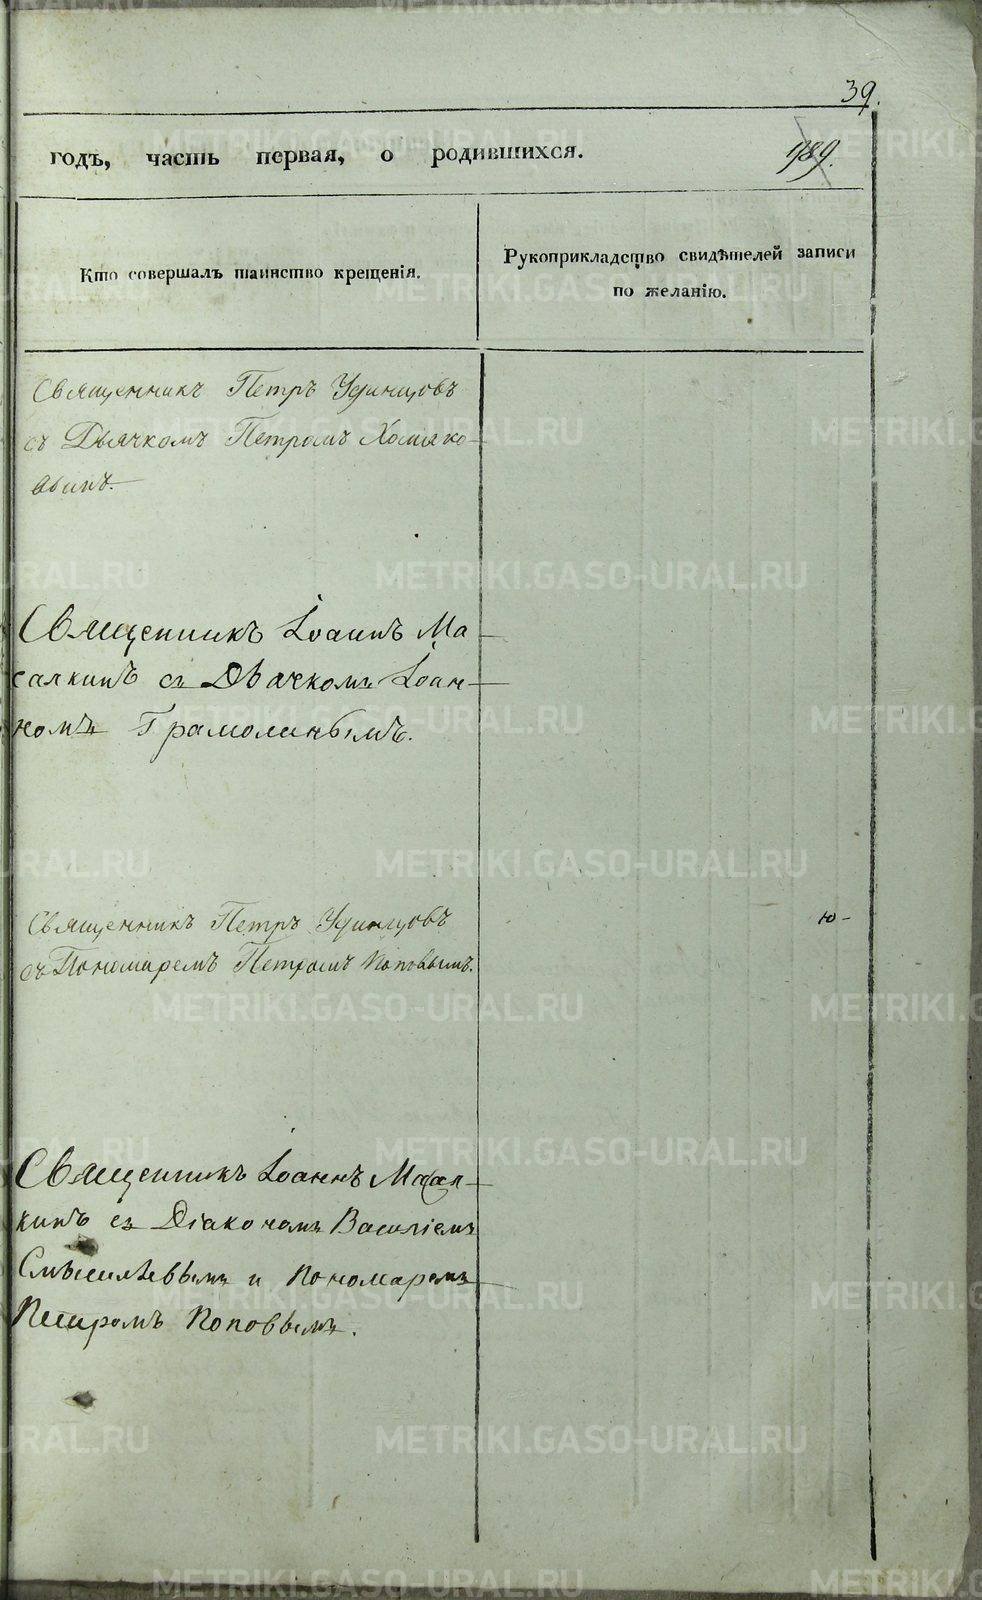 39.
годъ, часть первая, о родившихся.
189.
Кто совершалъ таинство крещенія.
Рукоприкладство свидѣтелей записи
по желанію.
Священникъ Петръ Удинцовъ
съ Дьячкомъ Петромъ Хомяко-
вымъ.
Священникъ Іоаннъ Ма-
салкинъ съ Дьячкомъ Іоан-
номъ Грамолинымъ.
Священникъ Петръ Удинцовъ
съ Пономаремъ Петромъ Поповымъ.
ю-
Священникъ Іоаннъ Масал-
кинъ съ Діакономъ Василіемъ
и Пономаремъ
Петромъ Поповымъ.
METRIKI.GASO-URAL.RU